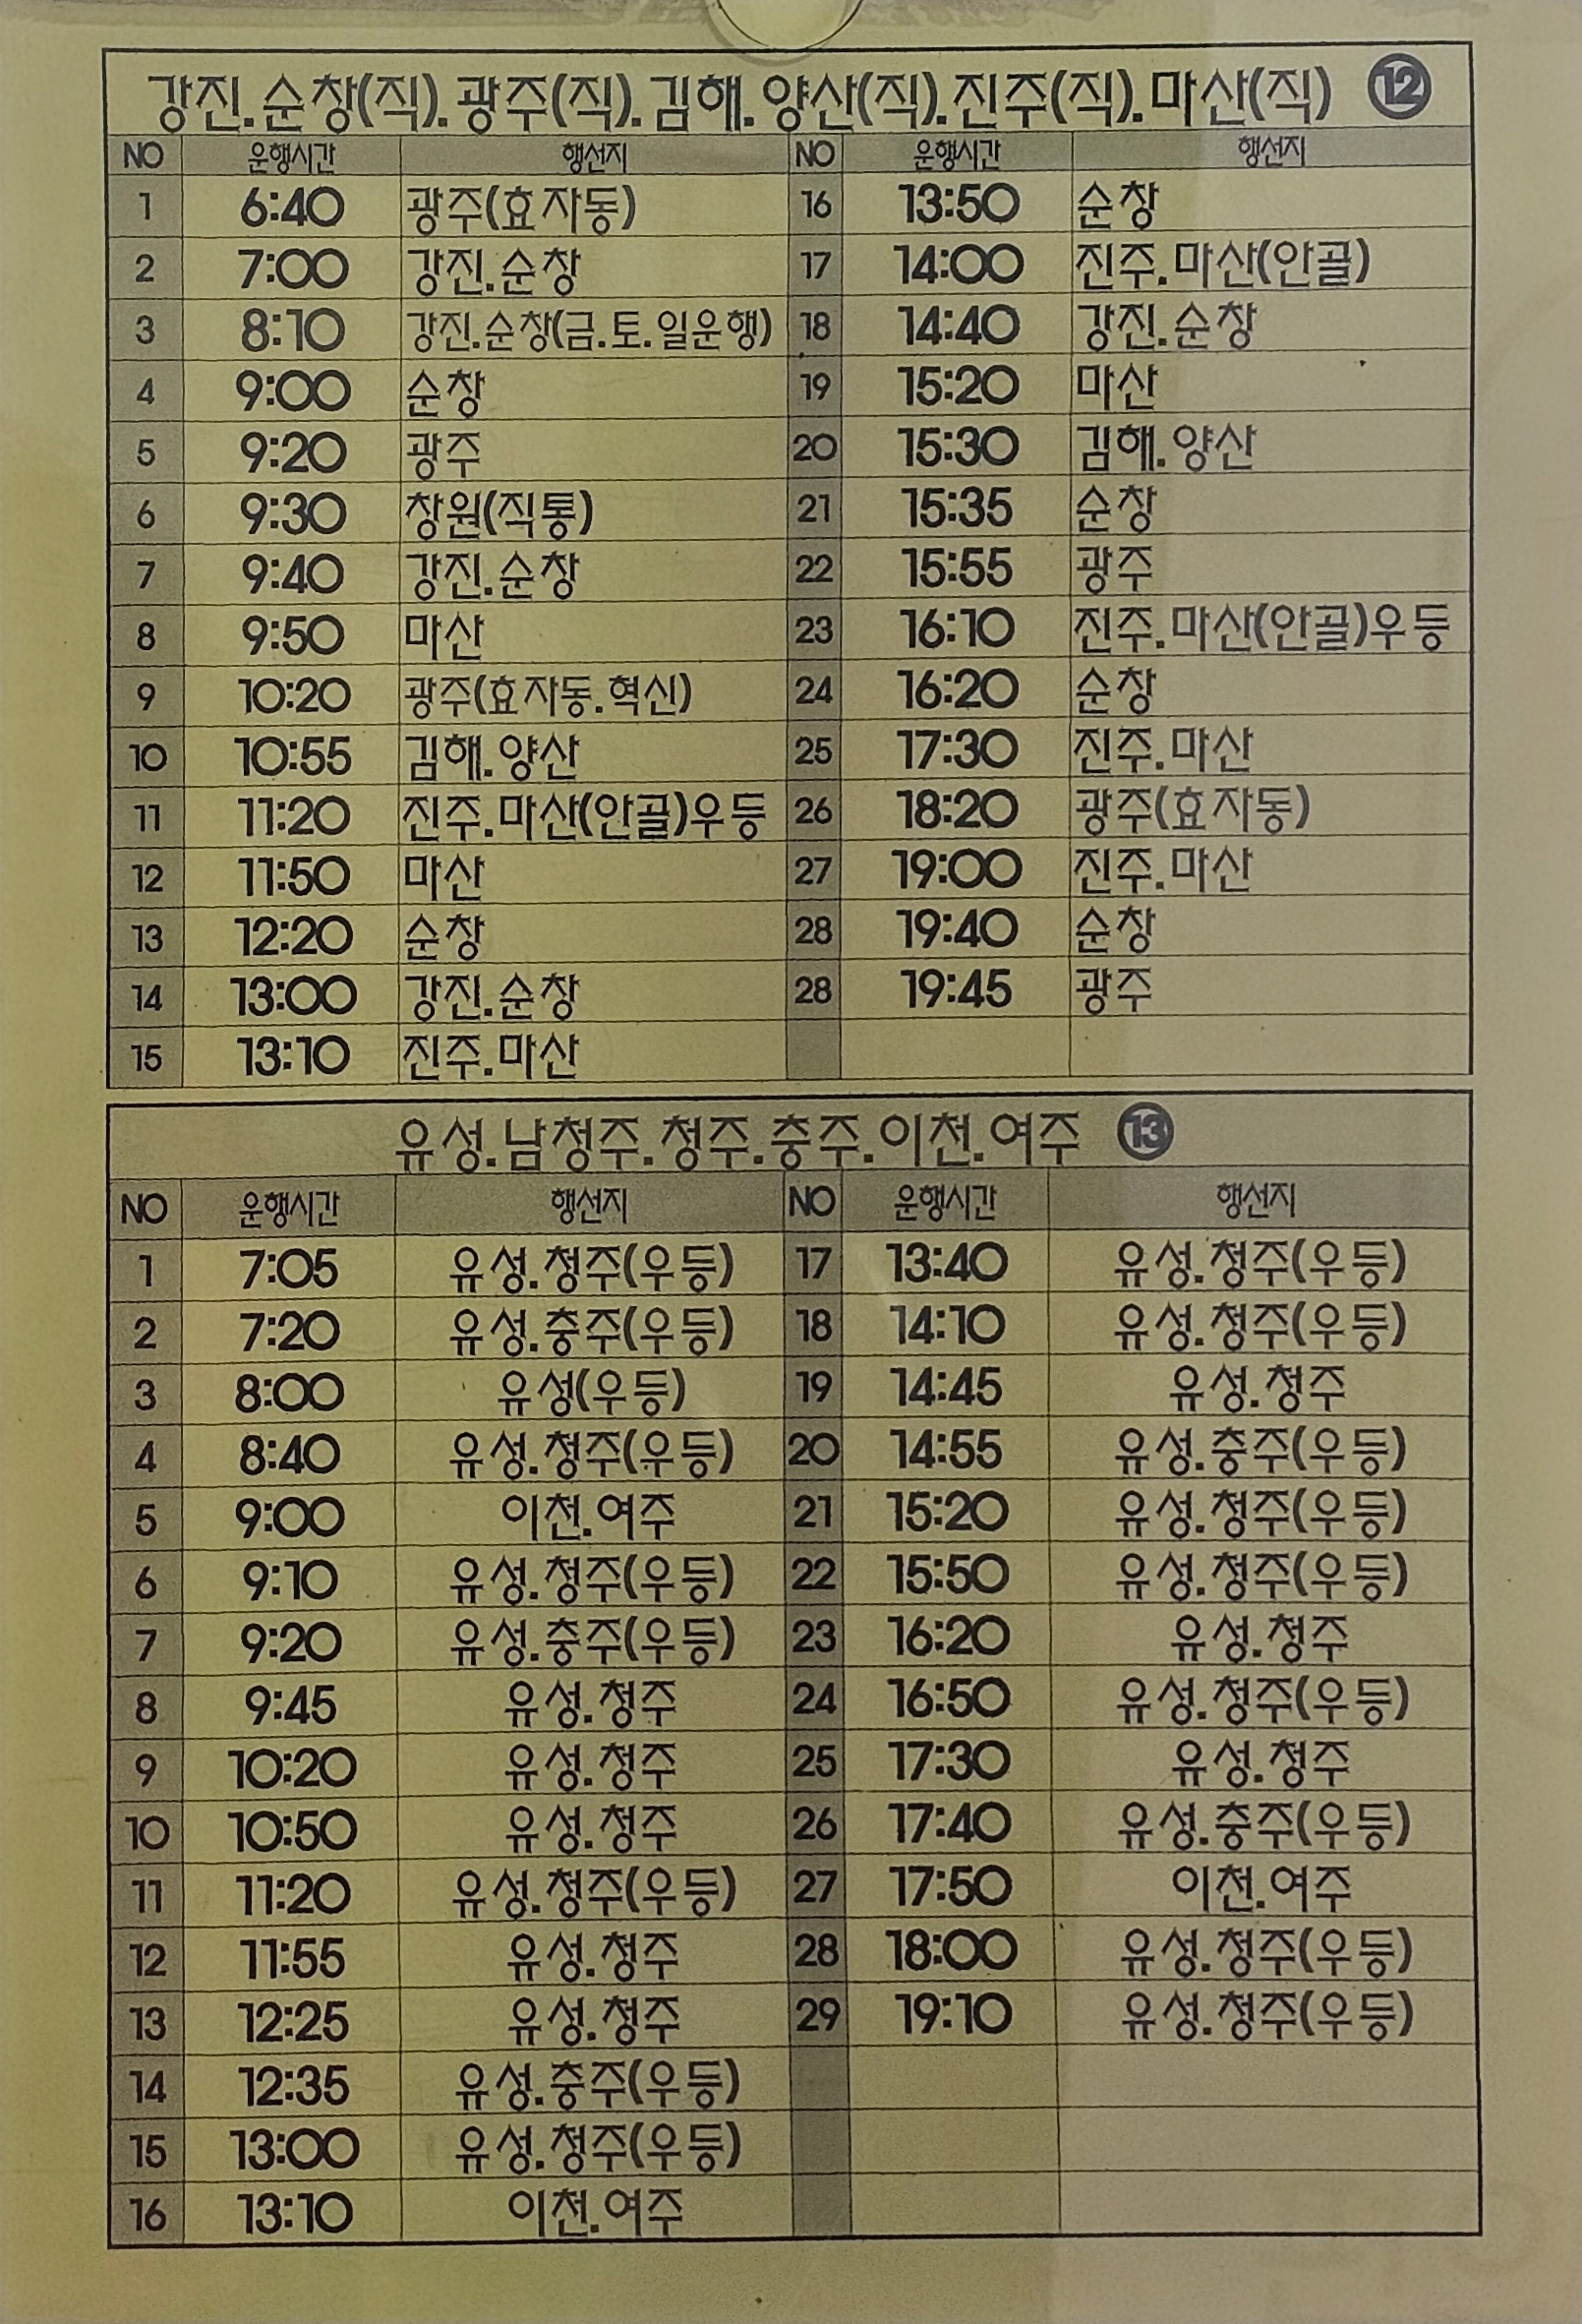 강진.순창(직).광주(직).김해.양산(직).진주(직).마산(직) ⑫
NO 운행시간 행선지 NO 운행시간 행선지
1 6:40 광주(효자동) 16 13:50 순창
2 7:00 강진.순창 17 14:00 진주.마산(안골)
3 8:10 강진.순창(금.토.일운행) 18 14:40 강진.순창
4 9:00 순창 19 15:20 마산
5 9:20 광주 20 15:30 김해.양산
6 9:30 창원(직통) 21 15:35 순창
7 9:40 강진.순창 22 15:55 광주
8 9:50 마산 23 16:10 진주.마산(안골)우등
9 10:20 광주(효자동.혁신) 24 16:20 순창
10 10:55 김해.양산 25 17:30 진주.마산
11 11:20 진주.마산(안골)우등 26 18:20 광주(효자동)
12 11:50 마산 27 19:00 진주.마산
13 12:20 순창 28 19:40 순창
14 13:00 강진.순창 28 19:45 광주
15 13:10 진주.마산
유성.남청주.청주.충주.이천.여주 ⑬
NO 운행시간 행선지 NO 운행시간 행선지
1 7:05 유성.청주(우등) 17 13:40 유성.청주(우등)
2 7:20 유성.충주(우등) 18 14:10 유성.청주(우등)
3 8:00 유성(우등) 19 14:45 유성.청주
4 8:40 유성.청주(우등) 20 14:55 유성.충주(우등)
5 9:00 이천.여주 21 15:20 유성.청주(우등)
6 9:10 유성.청주(우등) 22 15:50 유성.청주(우등)
7 9:20 유성.충주(우등) 23 16:20 유성.청주
8 9:45 유성.청주 24 16:50 유성.청주(우등)
9 10:20 유성.청주 25 17:30 유성.청주
10 10:50 유성.청주 26 17:40 유성.충주(우등)
11 11:20 유성.청주(우등) 27 17:50 이천.여주
12 11:55 유성.청주 28 18:00 유성.청주(우등)
13 12:25 유성.청주 29 19:10 유성.청주(우등)
14 12:35 유성.충주(우등)
15 13:00 유성.청주(우등)
16 13:10 이천.여주